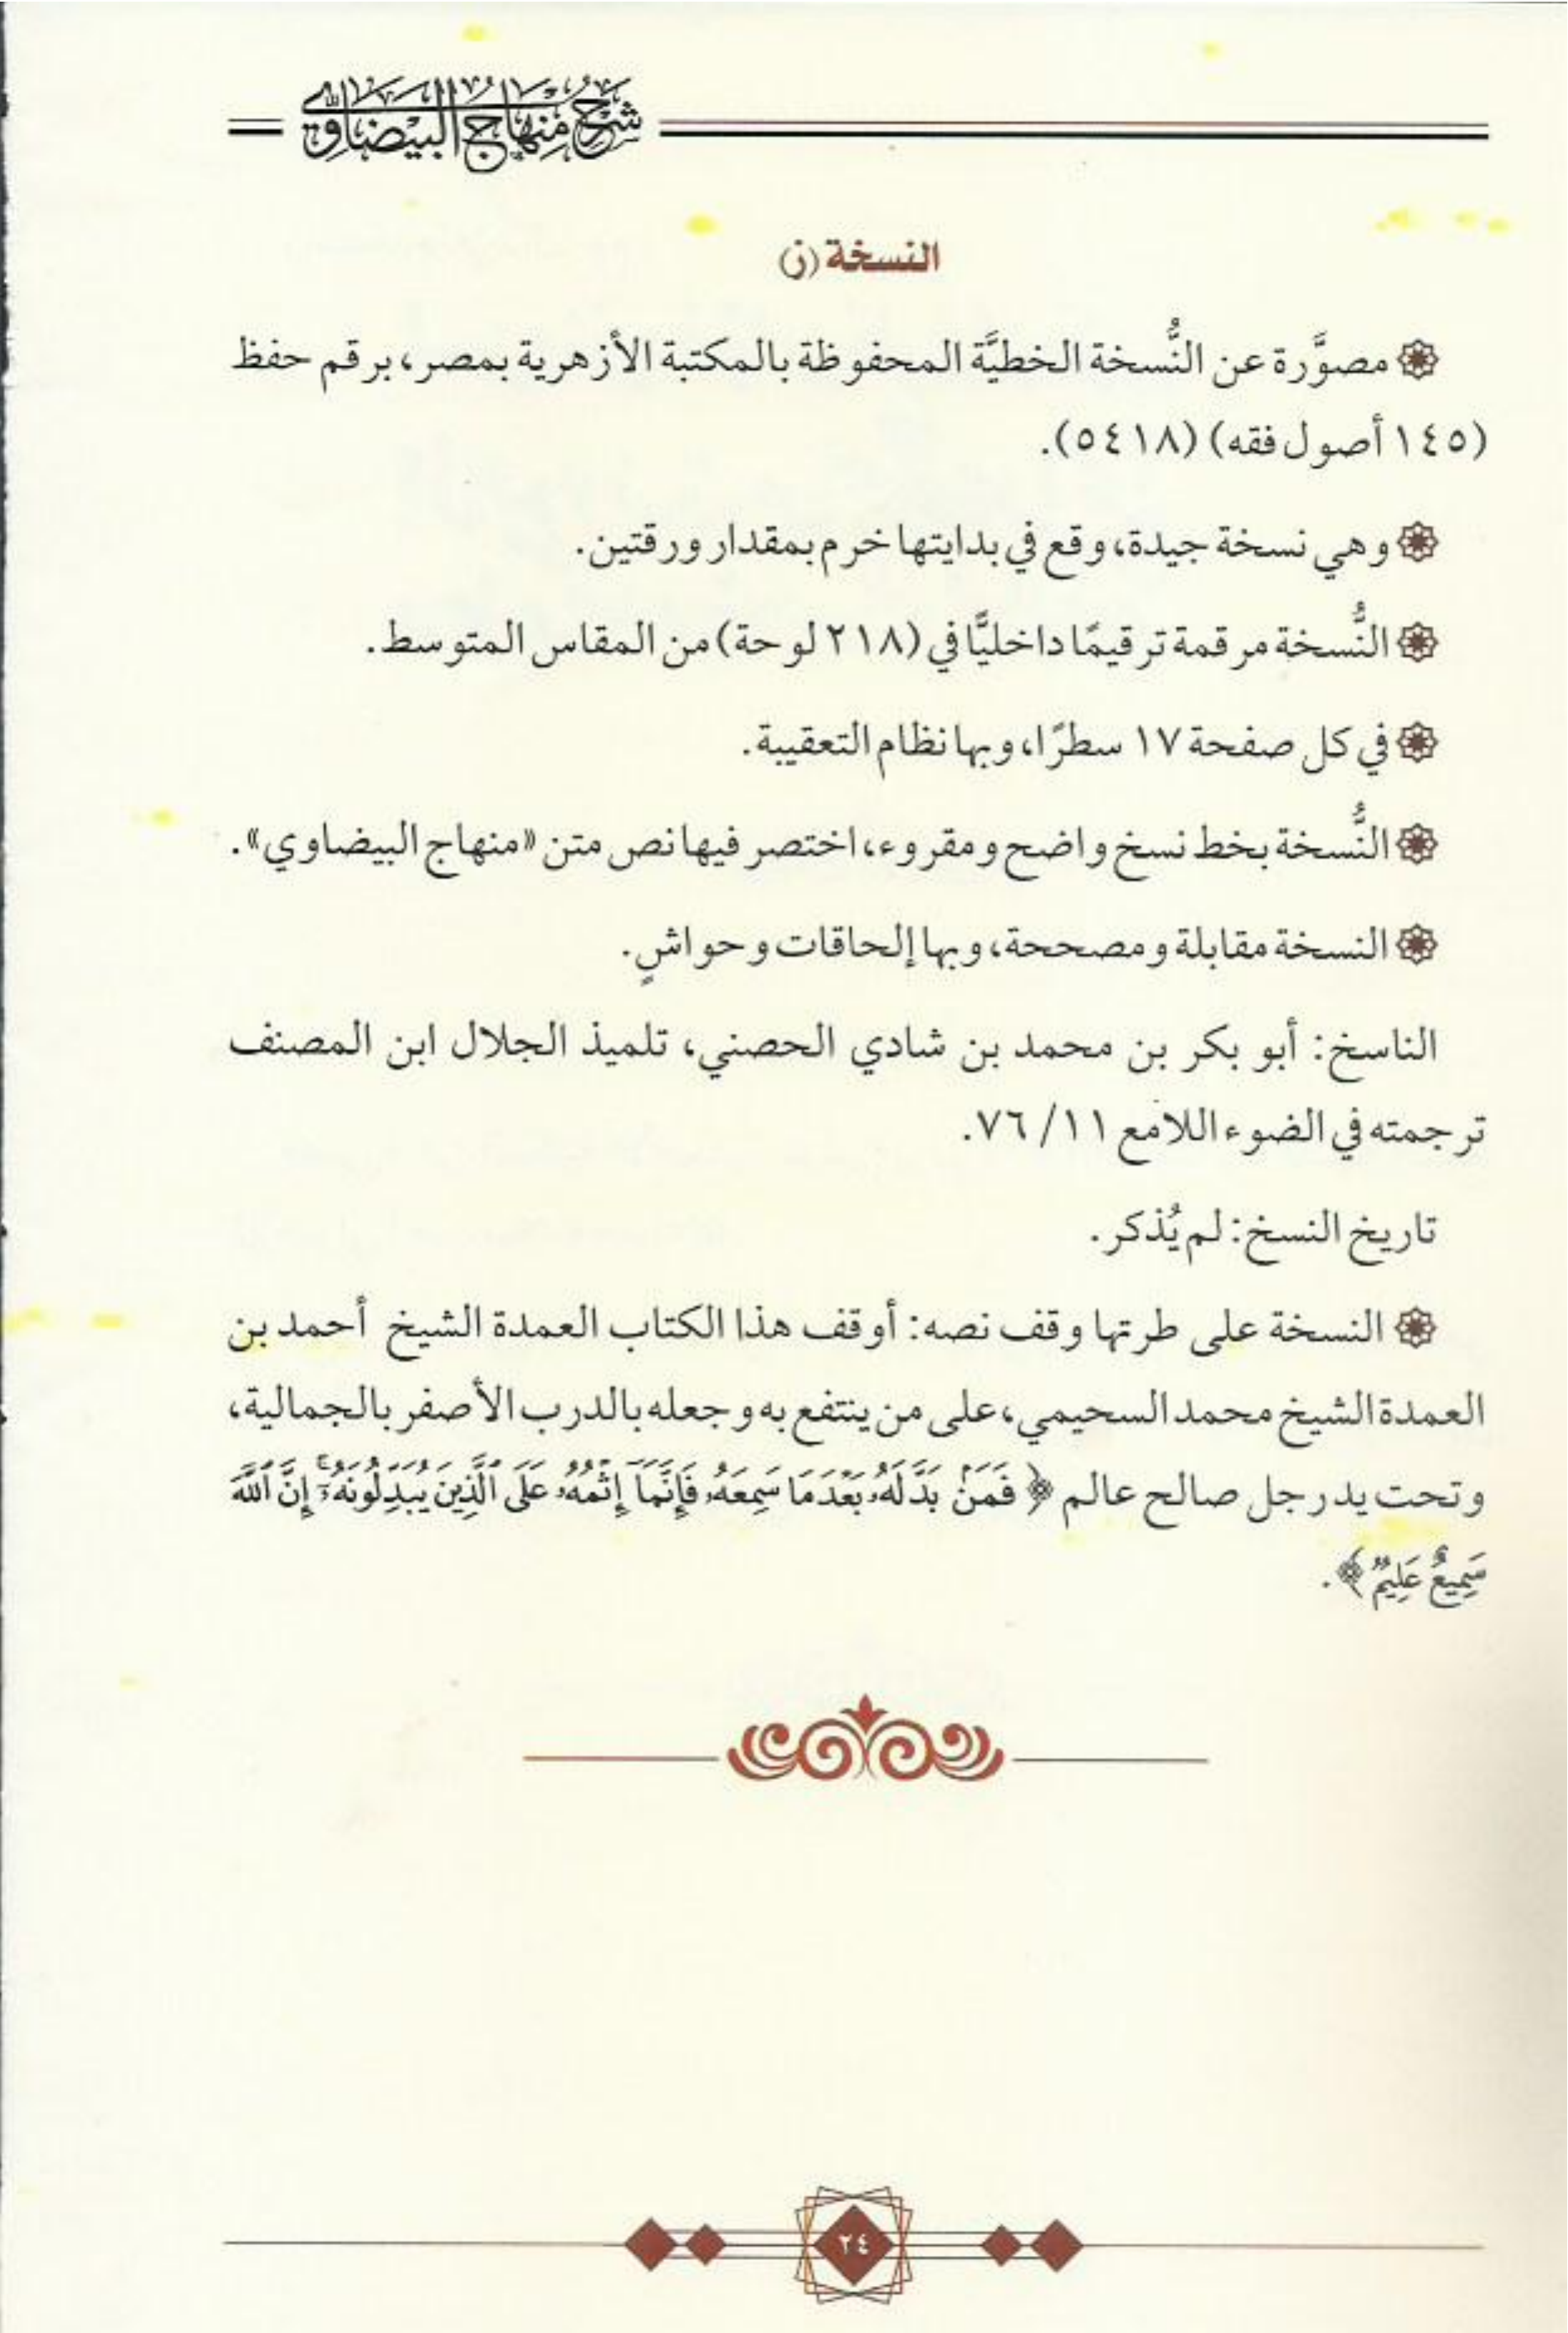 شرح منهاج البيضاوي
النسخة (ز)
مصوَّرة عن النُّسخة الخطيَّة المحفوظة بالمكتبة الأزهرية بمصر، برقم حفظ
(١٤٥ أصول فقه) (٥٤١٨).
وهي نسخة جيدة، وقع في بدايتها خرم بمقدار ورقتين.
النُّسخة مرقمة ترقيمًا داخليًّا في (٢١٨ لوحة) من المقاس المتوسط.
في كل صفحة ١٧ سطرًا، وبها نظام التعقيبة.
النُّسخة بخط نسخ واضح ومقروء، اختصر فيها نص متن «منهاج البيضاوي».
النسخة مقابلة ومصححة، وبها إلحاقات وحواشٍ.
الناسخ: أبو بكر بن محمد بن شادي الحصني، تلميذ الجلال ابن المصنف
ترجمته في الضوء اللامع ١١/ ٧٦.
تاريخ النسخ: لم يُذكر.
النسخة على طرتها وقف نصه: أوقف هذا الكتاب العمدة الشيخ أحمد بن
العمدة الشيخ محمد السحيمي، على من ينتفع به وجعله بالدرب الأصفر بالجمالية،
وتحت يد رجل صالح عالم ﴿فَمَنۢ بَدَّلَهُۥ بَعۡدَمَا سَمِعَهُۥ فَإِنَّمَآ إِثۡمُهُۥ عَلَى ٱلَّذِينَ يُبَدِّلُونَهُۥٓۚ إِنَّ ٱللَّهَ
سَمِيعٌ عَلِيمٌ﴾.
٢٤